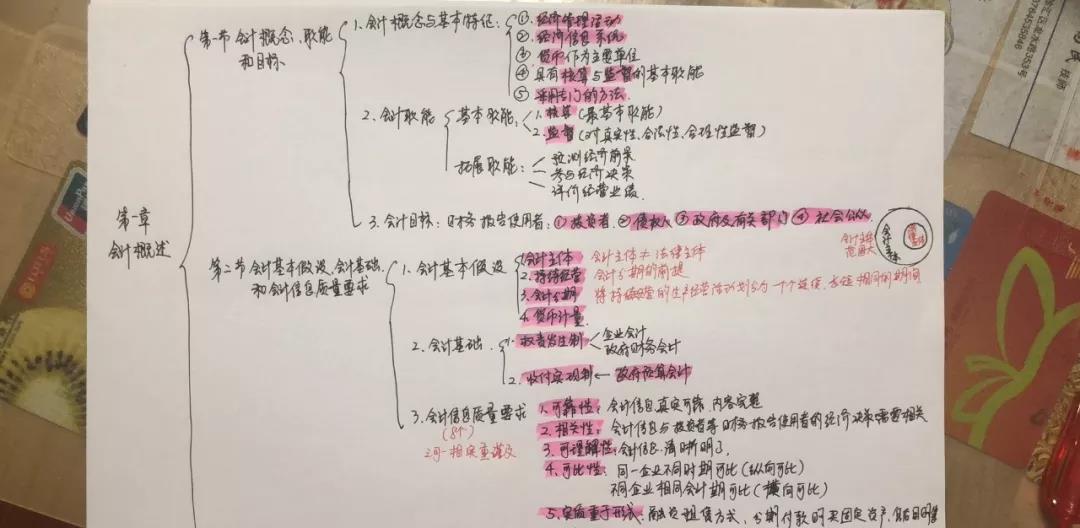 第一章
会计概述
第一节 会计概念、职能
和目标
1. 会计概念与基本特征:
①. 经济管理活动
②. 经济信息系统
③ 货币作为主要单位
④ 具有核算与监督的基本职能
⑤ 采用专门的方法.
2. 会计职能
基本职能:
1. 核算(最基本职能)
2. 监督(对真实性、合法性、合理性监督)
拓展职能:
预测经济前景
参与经济决策
评价经营业绩.
3. 会计目标: 财务报告使用者: ①投资者. ②债权人 ③政府及有关部门 ④社会公众.
第二节 会计基本假设、会计基础,
和会计信息质量要求
1. 会计基本假设
会计主体 会计主体≠法律主体
2. 持续经营 会计分期的前提
3. 会计分期 将持续经营的生产经营活动划分为一个个连续、长短相同的期间
4. 货币计量.
会计主体
范围大
会计主体
法律主体
2. 会计基础.
1. 权责发生制
企业会计
政府财务会计
2. 收付实现制 ← 政府预算会计
3. 会计信息质量要求
(8个)
二可一相实重谨及
1. 可靠性: 会计信息真实可靠、内容完整
2. 相关性: 会计信息与投资者等财务报告使用者的经济决策需要相关
3. 可理解性: 会计信息清晰明了,
4. 可比性: 同一企业不同时期可比(纵向可比)
不同企业相同会计期可比(横向可比)
5. 实质重于形式: 融资租赁方式、分期付款购买固定资产,